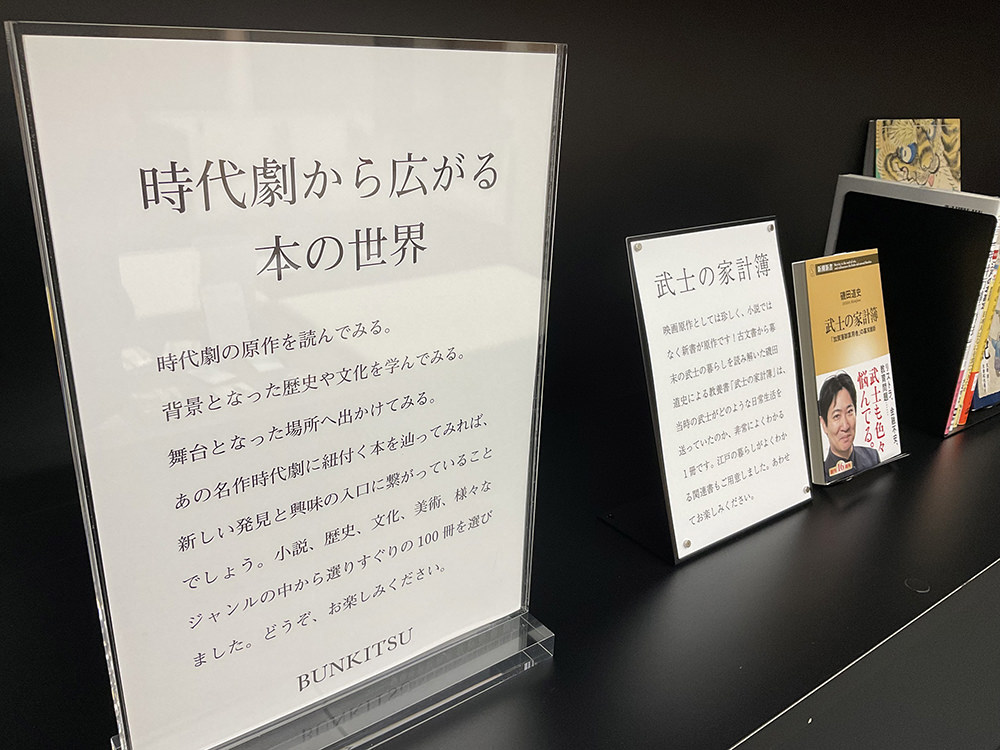 時代劇から広がる
本の世界
時代劇の原作を読んでみる。
背景となった歴史や文化を学んでみる。
舞台となった場所へ出かけてみる。
あの名作時代劇に紐付く本を辿ってみれば、
新しい発見と興味の入口に繋がっていること
でしょう。小説、歴史、文化、美術、様々な
ジャンルの中から選りすぐりの100冊を選び
ました。どうぞ、お楽しみください。
BUNKITSU
武士の家計簿
映画原作としては珍しく、小説では
なく新書が原作です！古文書から幕
末の武士の暮らしを読み解いた磯田
道史による教養書『武士の家計簿』は、
当時の武士がどのような日常生活を
送っていたのか、非常によくわかる
1冊です。江戸の暮らしがよくわか
る関連書もご用意しました。あわせ
てお楽しみください。
新潮新書
磯田道史
武士の家計簿
「加賀藩御算用者」の幕末維新
リストラ、金融不安、
教育問題
武士も色々
悩んでる。